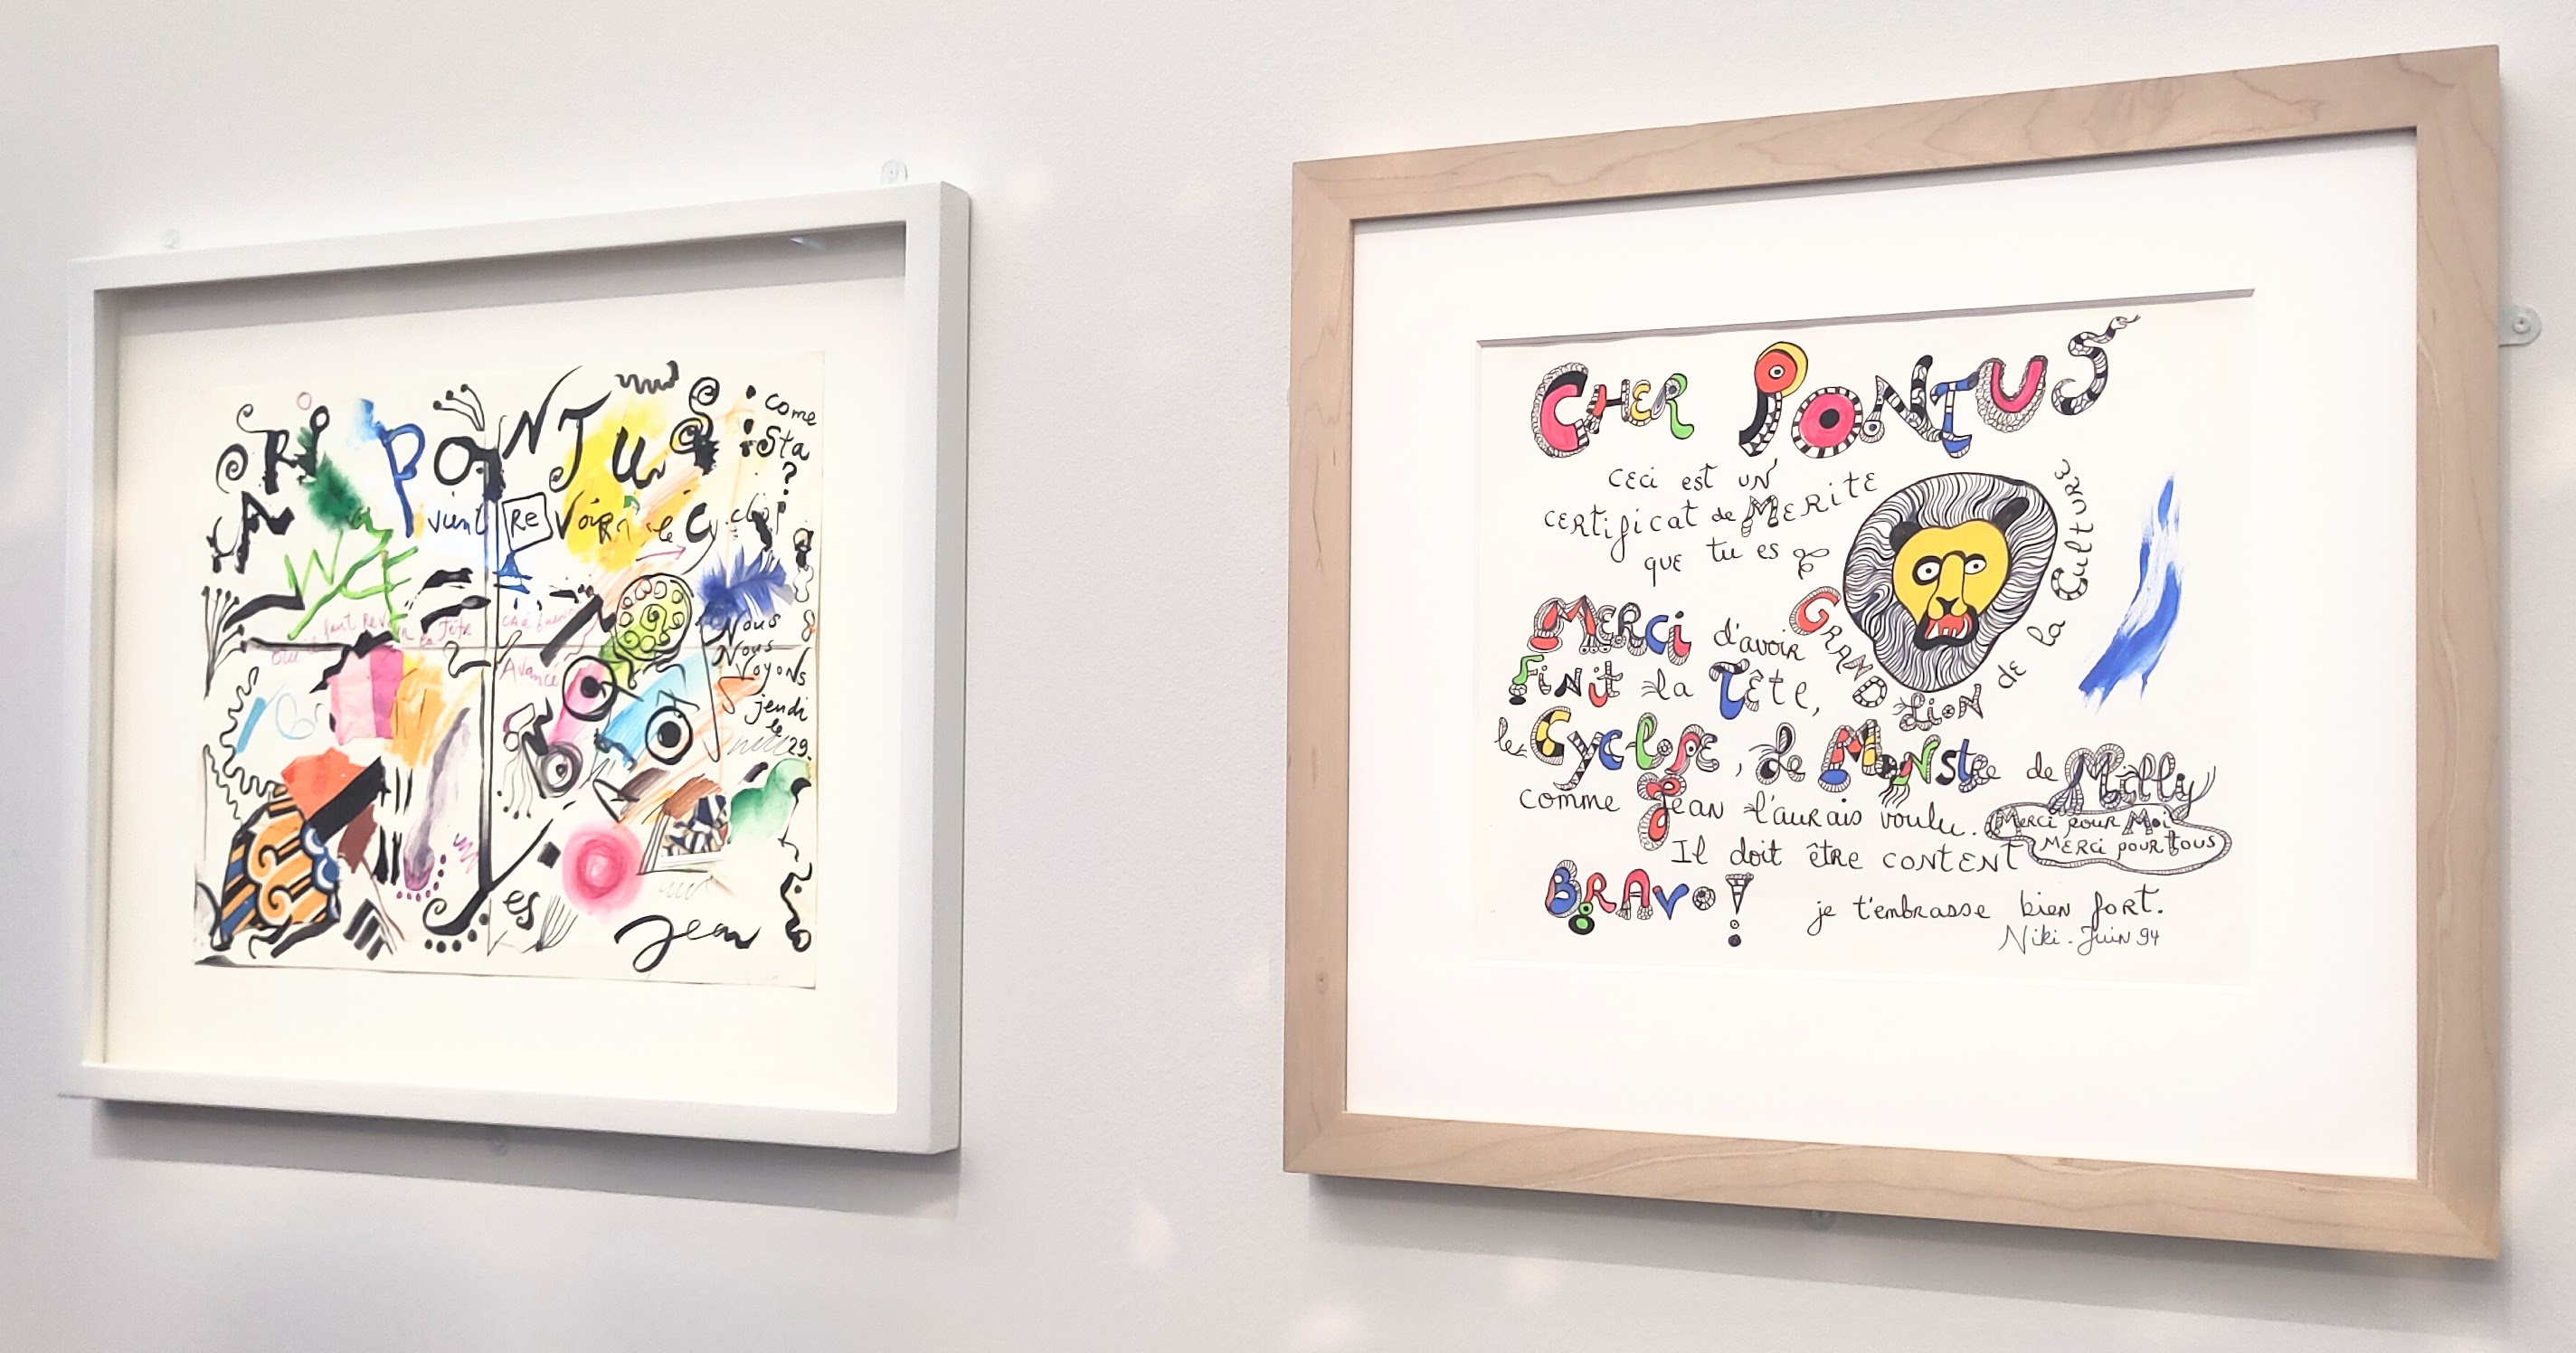 PONTUS :
come
sta
?
vient Re Voir le Cyclop
faut Revoir la Tête
Avance
Nous
Nous
Voyons
jeudi
le
29.
es
Jean
CHER PONTUS
ceci est un
certificat de MERITE
que tu es
GRAND Lion de la Culture
MERCi d'avoir
FiNit la Tête,
le CYCLOPE, Le MONstre de Milly
comme Jean l'aurais voulu.
Merci pour Moi
MERCi pour tous
Il doit être CONTENT
BRAVO!
je t'embrasse bien fort.
Niki - Juin 94